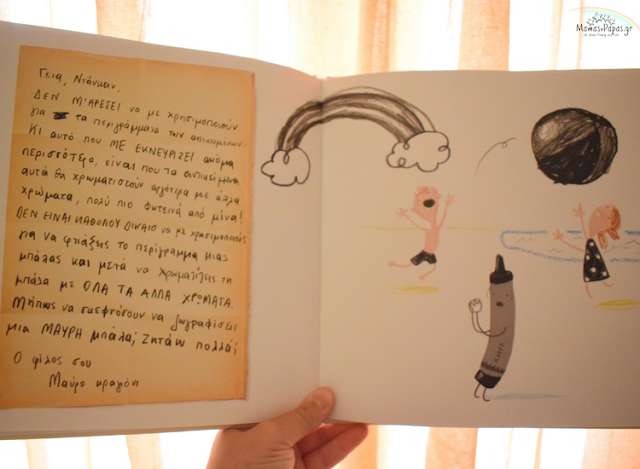 Γεια, Ντάνκαν,
ΔΕΝ Μ'ΑΡΕΣΕΙ να με χρησιμοποιούν
για τα περιγράμματα των αντικειμένων.
Κι αυτό που ΜΕ ΕΚΝΕΥΡΙΖΕΙ ακόμα
περισσότερο, είναι που τα αντικείμενα
αυτά θα χρωματιστούν αργότερα με άλλα
χρώματα, πολύ πιο φωτεινά από μένα!
ΔΕΝ ΕΙΝΑΙ ΚΑΘΟΛΟΥ ΔΙΚΑΙΟ να με χρησιμοποιείς
για να φτιάξεις το περίγραμμα μιας
μπάλας και μετά να χρωματίζεις τη
μπάλα με ΟΛΑ ΤΑ ΑΛΛΑ ΧΡΩΜΑΤΑ.
Μήπως να σκεφτόσουν να ζωγραφίσεις
μια ΜΑΥΡΗ μπάλα; Ζητάω πολλά;
Ο φίλος σου
Μαύρο κραγιόνι
Mamas&Papas.gr